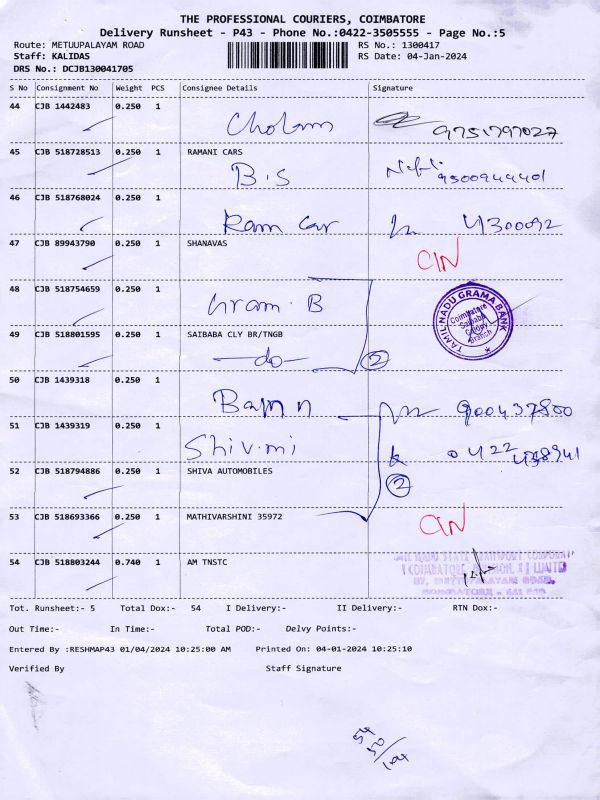 THE PROFESSIONAL COURIERS, COIMBATORE
Delivery Runsheet - P43 - Phone No.:0422-3505555 - Page No.:5
Route: METUUPALAYAM ROAD RS No.: 1300417
Staff: KALIDAS RS Date: 04-Jan-2024
DRS No.: DCJB130041705
S No Consignment No Weight PCS Consignee Details Signature
44 CJB 1442483 0.250 1
9751797027
45 CJB 518728513 0.250 1 RAMANI CARS
B.S
46 CJB 518768024 0.250 1
Ram Car 4300092
47 CJB 89943790 0.250 1 SHANAVAS
CIN
48 CJB 518754659 0.250 1
Gram. B
TAMIL NADU GRAMA BANK
Coimbatore
Saibaba
Colony
Branch
49 CJB 518801595 0.250 1 SAIBABA CLY BR/TNGB
-do- 2
50 CJB 1439318 0.250 1
51 CJB 1439319 0.250 1
52 CJB 518794886 0.250 1 SHIVA AUTOMOBILES
2
53 CJB 518693366 0.250 1 MATHIVARSHINI 35972
CIN
54 CJB 518803244 0.740 1 AM TNSTC
Tot. Runsheet:- 5 Total Dox:- 54 I Delivery:- II Delivery:- RTN Dox:-
Out Time:- In Time:- Total POD:- Delvy Points:-
Entered By :RESHMAP43 01/04/2024 10:25:00 AM Printed On: 04-01-2024 10:25:10
Verified By Staff Signature